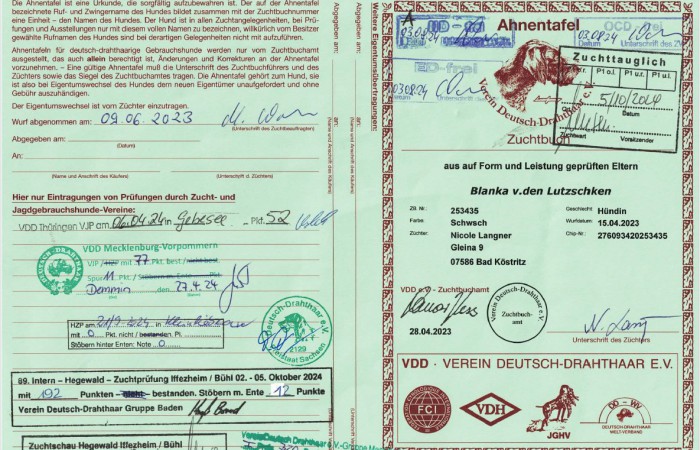 Die Ahnentafel ist eine Urkunde, die sorgfältig aufzubewahren ist. Der auf der Ahnentafel
bezeichnete Ruf- und Zwingername des Hundes bildet zusammen mit der Zuchtbuchnummer
eine Einheit – den Namen des Hundes. Der Hund ist in allen Zuchtangelegenheiten, bei Prü-
fungen und Ausstellungen nur mit diesem vollen Namen zu bezeichnen, willkürlich vom Besitzer
gewählte Rufnamen des Hundes sind bei derartigen Gelegenheiten nicht mit aufzuführen.
Ahnentafeln für deutsch-drahthaarige Gebrauchshunde werden nur vom Zuchtbuchamt
ausgestellt, das auch allein berechtigt ist, Änderungen und Korrekturen an der Ahnentafel
vorzunehmen. – Eine gültige Ahnentafel muß die Unterschrift des Zuchtbuchführers und des
Züchters sowie das Siegel des Zuchtbuchamtes tragen. Die Ahnentafel gehört zum Hund, sie
ist also bei Eigentumswechsel des Hundes dem neuen Eigentümer unaufgefordert und ohne
Gebühr auszuhändigen.
Der Eigentumswechsel ist vom Züchter einzutragen.
Wurf abgenommen am: 09.06.2023
(Unterschrift des Zuchtbeauftragten)
Abgegeben am:
(Datum)
An:
(Name und Anschrift des Käufers)
(Unterschrift d. Züchters)
Hier nur Eintragungen von Prüfungen durch Zucht- und
Jagdgebrauchshunde-Vereine:
VDD Thüringen VJP am 06.04.24 in Gebesee – Pkt. 52
VDD Mecklenburg-Vorpommern
VJP / HZP mit 77 Pkt. best / nicht best.
Spur 11 Pkt. / Stöbern m. Ente Pkt.
Demmin, den 27.4.24
HZP am in
mit 0 Pkt. nicht / bestanden.
Stöbern hinter Ente: Note 0
Deutsch-Drahthaar e.V.
Freistaat Sachsen
89. Intern – Hegewald – Zuchtprüfung Iffezheim / Bühl 02. - 05. Oktober 2024
mit 192 Punkten – nicht – bestanden. Stöbern m. Ente 12 Punkte
Verein Deutsch-Drahthaar Gruppe Baden
Zuchtschau Hegewald Iffezheim / Bühl
Abgegeben am:
An:
(Name und Anschrift des Käufers)
Abgegeben am:
An:
(Name und Anschrift des Käufers)
Weitere Eigentumsübertragungen:
A
03.08.24
Ahnentafel
OCD - frei
03.08.24
Datum
ED-frei
03.08.24
Zuchttauglich
5/10/2024
Zuchtwart
Vorsitzender
Verein Deutsch-Drahthaar e.V.
Zuchtbuch
aus auf Form und Leistung geprüften Eltern
Blanka v.den Lutzschken
ZB. Nr.: 253435 Geschlecht: Hündin
Farbe: Schwsch Wurfdatum: 15.04.2023
Züchter: Nicole Langner Chip-Nr.: 276093420253435
Gleina 9
07586 Bad Köstritz
VDD e.V. - Zuchtbuchamt
Verein Deutsch-Drahthaar e.V.
Zuchtbuch-
amt
28.04.2023
Unterschrift des Züchters
VDD - VEREIN DEUTSCH-DRAHTHAAR E.V.
FCI
VDH
JGHV
DD - WV
WELT-VERBAND